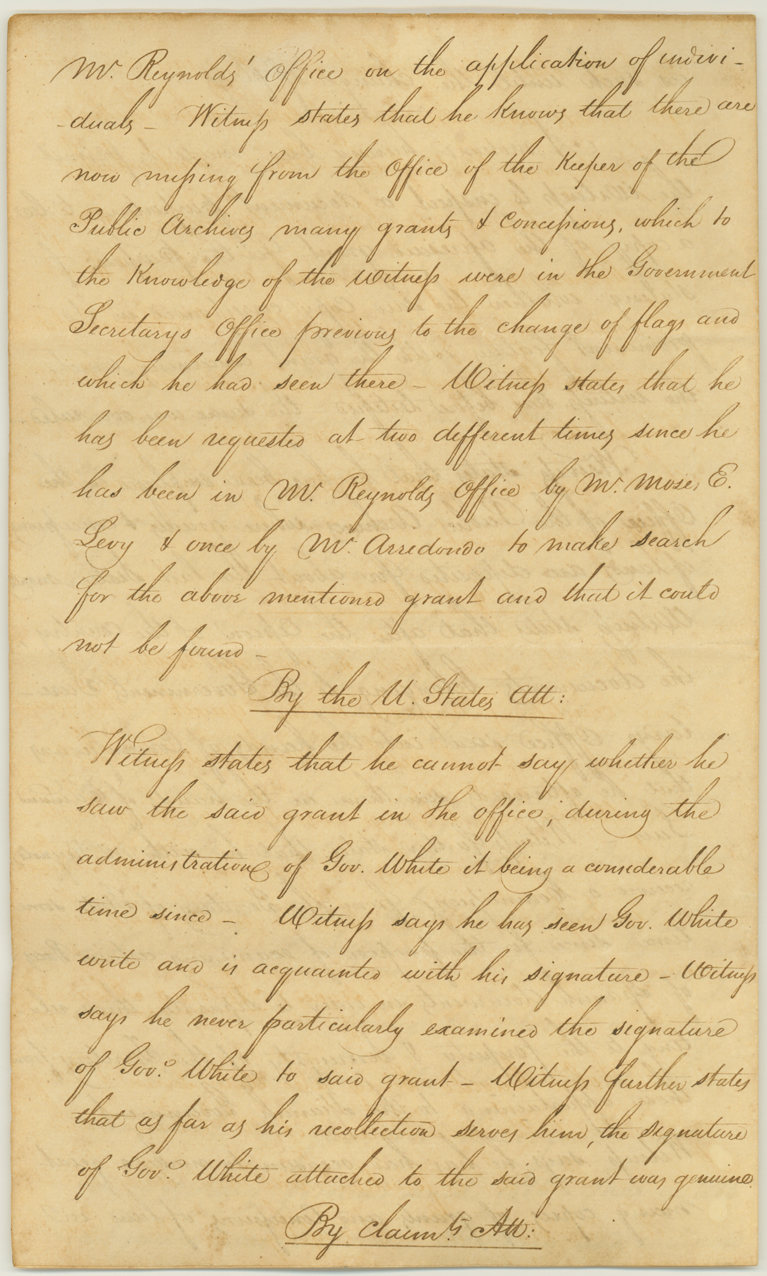 Mr. Reynolds' Office on the application of indivi-
-duals - Witness states that he knows that there are
now missing from the Office of the Keeper of the
Public Archives many grants & Concessions, which to
the Knowledge of the Witness were in the Government
Secretarys Office previous to the change of flags and
which he had seen there - Witness states that he
has been requested at two different times since he
has been in Mr. Reynolds Office by Mr. Moses E.
Levy & once by Mr. Arredondo to make search
for the above mentioned grant and that it could
not be found -
By the U. States Att:
Witness states that he cannot say whether he
saw the said grant in the office, during the
administration of Gov. White it being a considerable
time since - Witness says he has seen Gov. White
write and is acquainted with his signature - Witness
says he never particularly examined the signature
of Govo. White to said grant - Witness further states
that as far as his recollection serves him, the signature
of Govo. White attached to the said grant was genuine.
By Claimts Att: